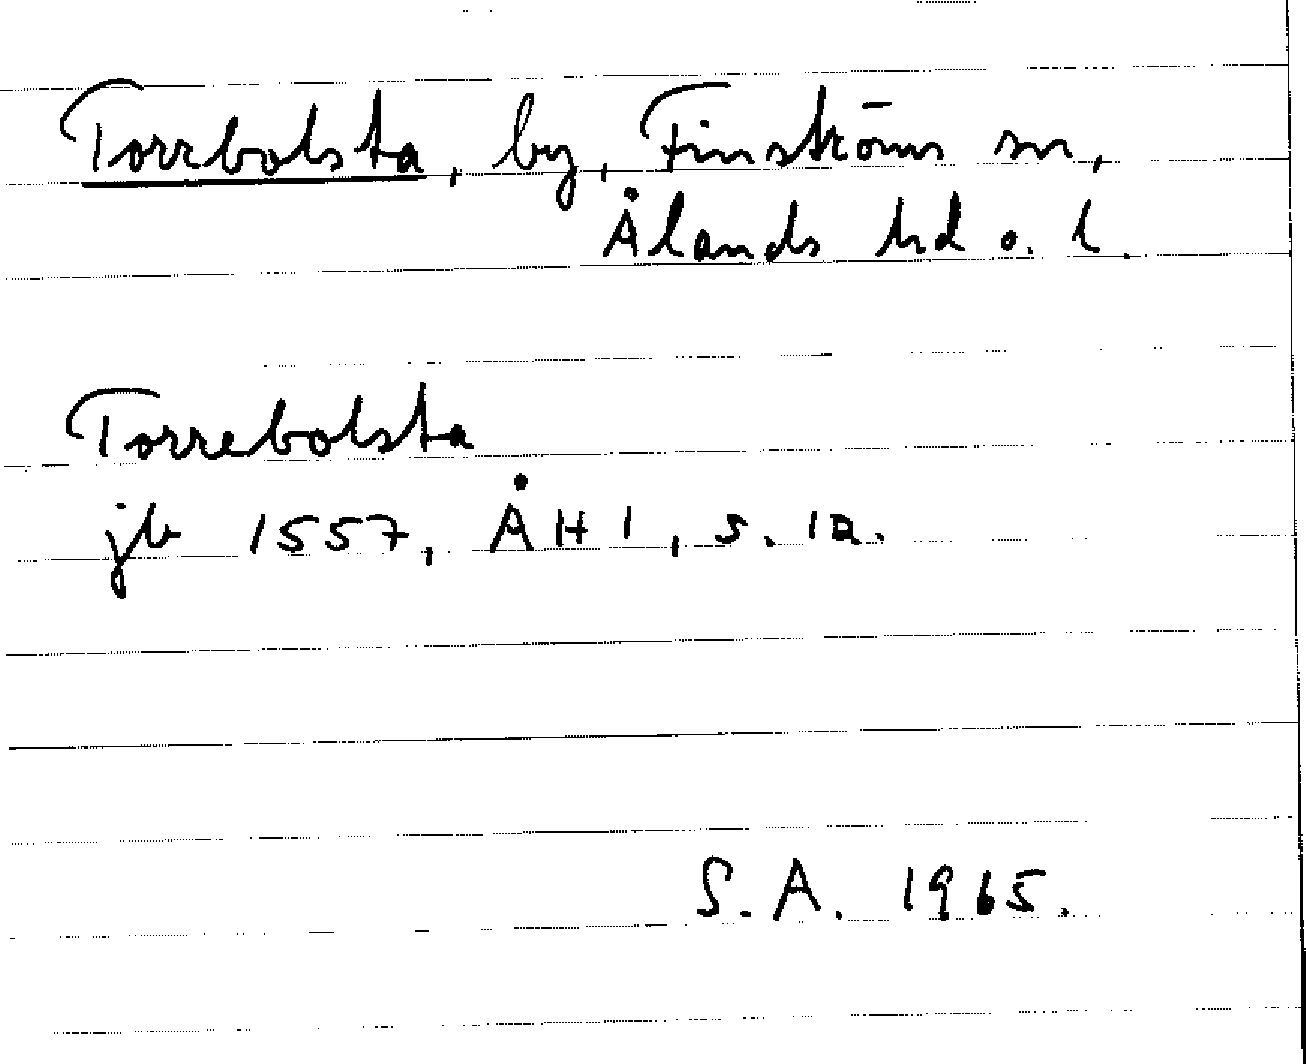 Torrbolsta, by, Finströms sn,
Ålands hd o. l.
Torrebolsta
jb 1557, ÅH I, s. 12.
S. A. 1965.